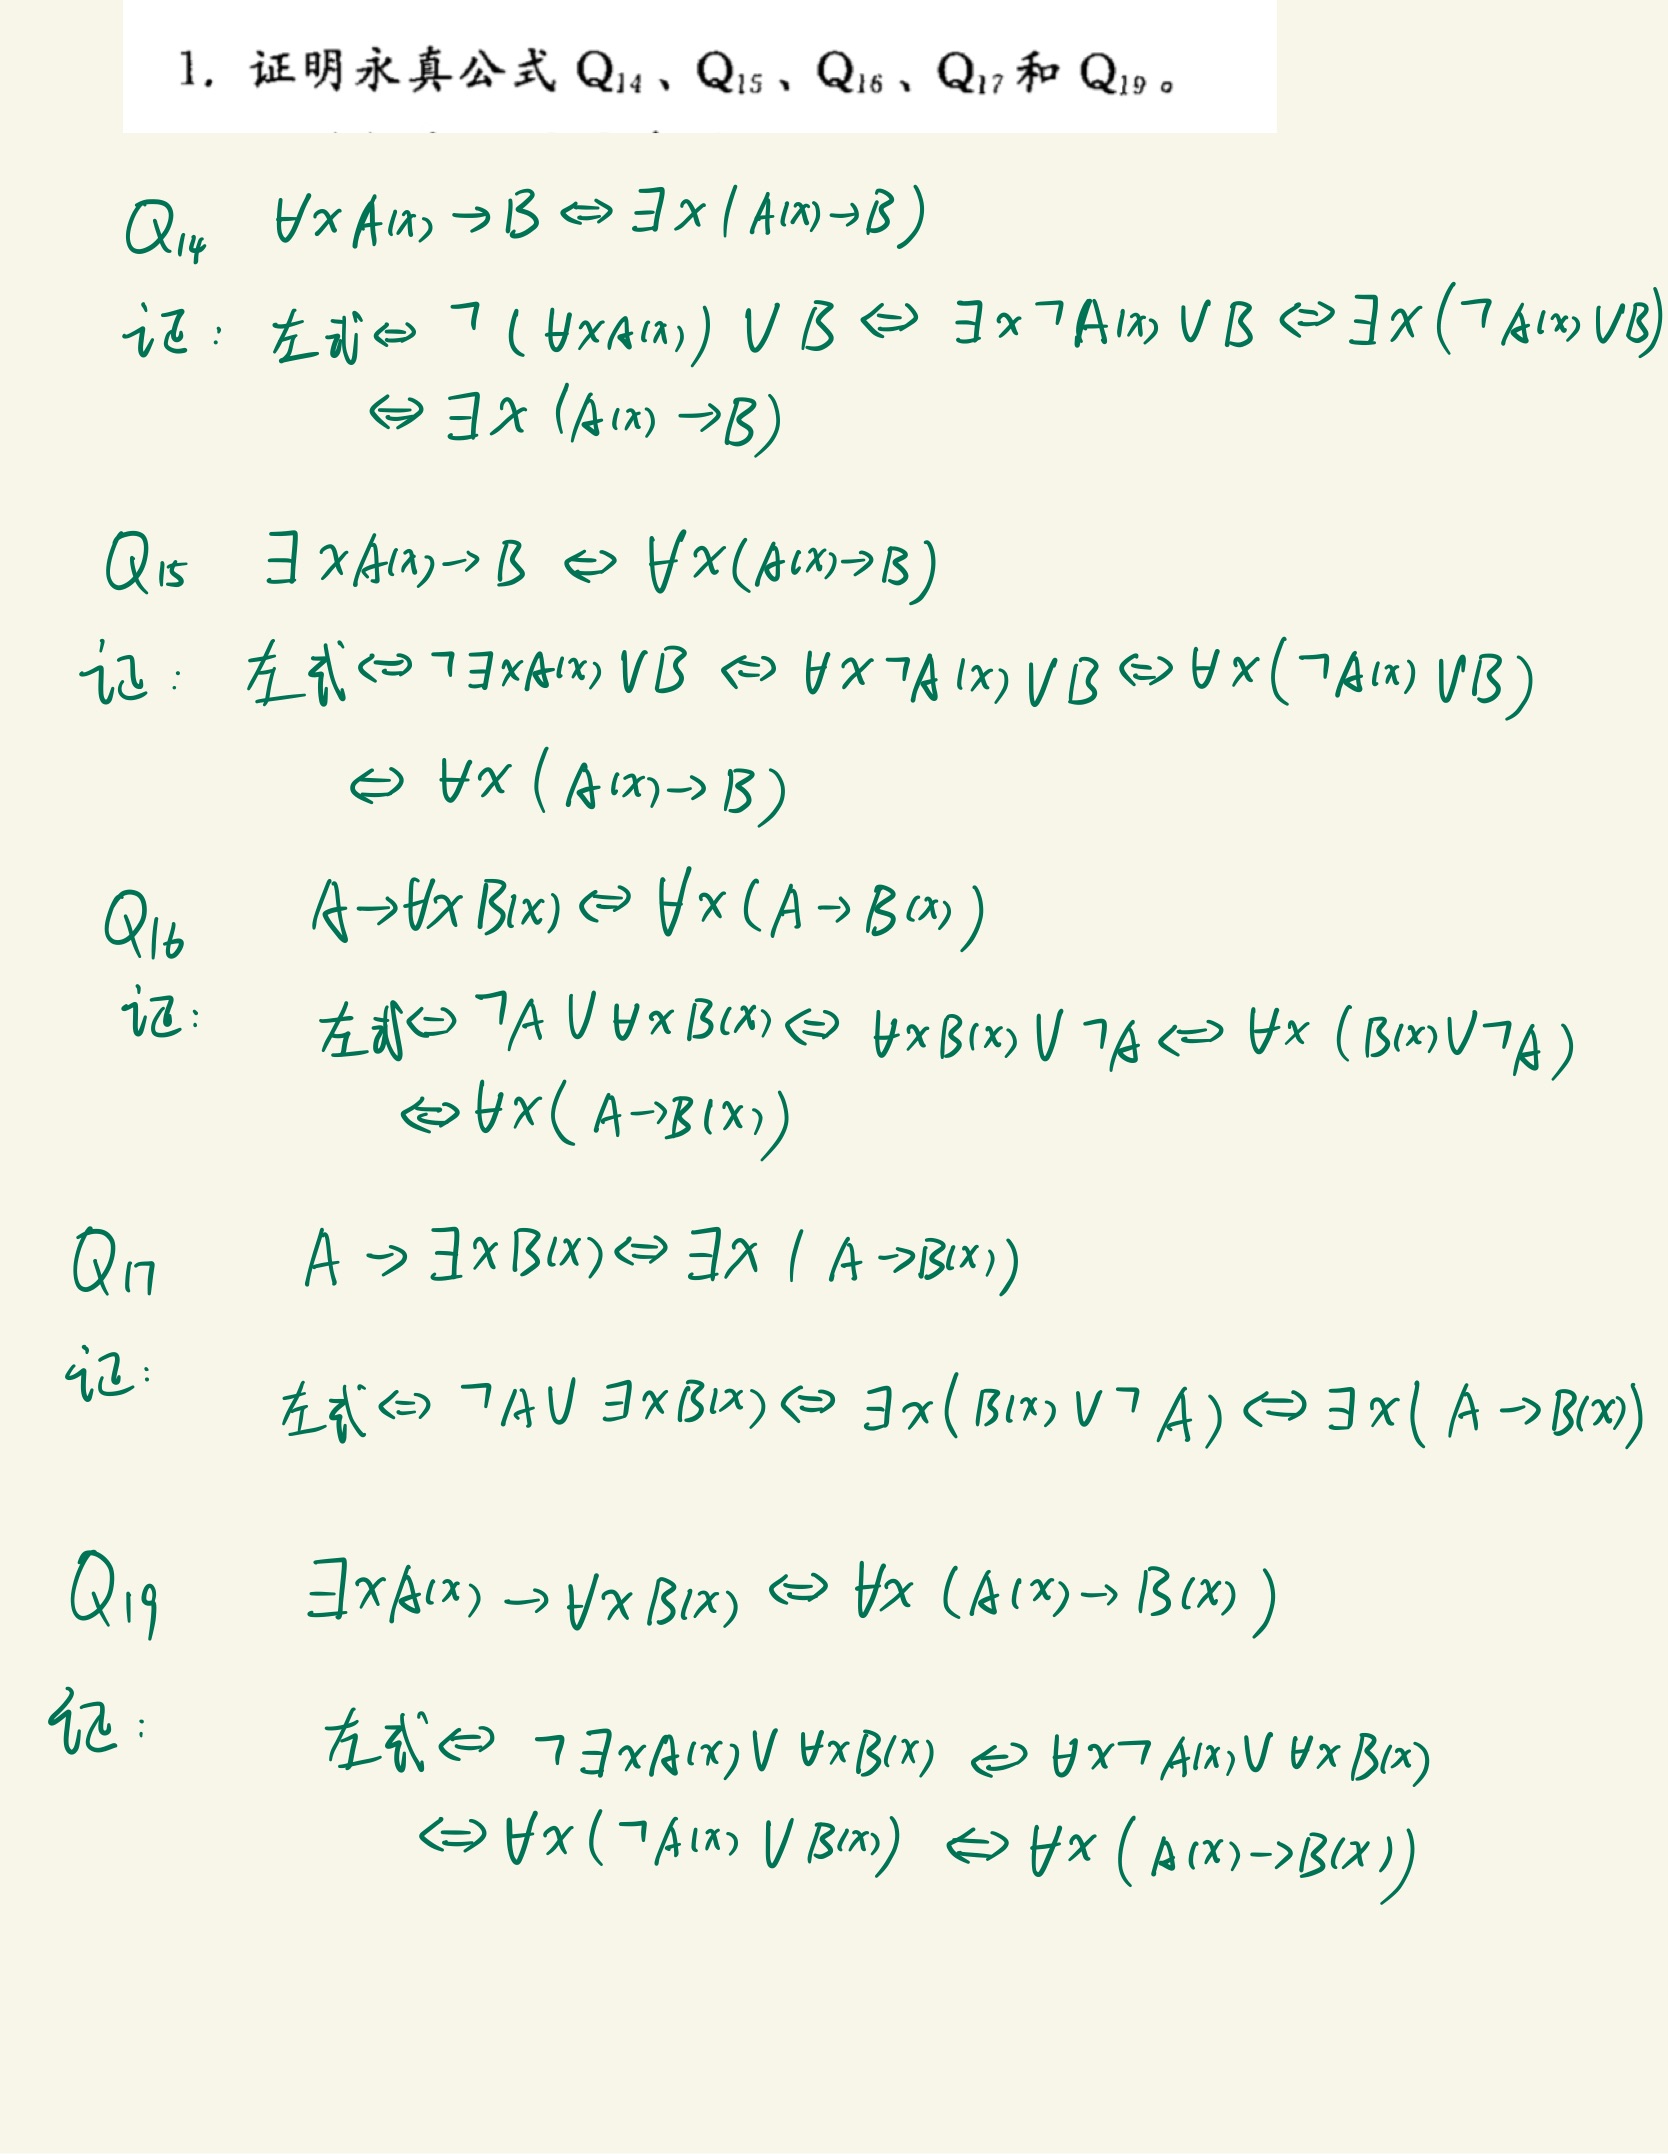 1. 证明永真公式 Q₁₄、Q₁₅、Q₁₆、Q₁₇和 Q₁₉。
Q₁₄ ∀xA(x)→B⇔∃x(A(x)→B)
记: 左式⇔ ¬(∀xA(x))∨B⇔ ∃x¬A(x)∨B⇔∃x(¬A(x)∨B)
⇔∃x(A(x)→B)
Q₁₅ ∃xA(x)→B ⇔ ∀x(A(x)→B)
记: 左式⇔¬∃xA(x)∨B ⇔ ∀x¬A(x)∨B⇔∀x(¬A(x)∨B)
⇔ ∀x(A(x)→B)
Q₁₆ A→∀xB(x)⇔ ∀x(A→B(x))
记: 左式⇔¬A∨∀xB(x)⇔ ∀xB(x)∨¬A⇔ ∀x(B(x)∨¬A)
⇔∀x(A→B(x))
Q₁₇ A→∃xB(x)⇔∃x(A→B(x))
记:
左式⇔¬A∨∃xB(x)⇔∃x(B(x)∨¬A)⇔∃x(A→B(x))
Q₁₉ ∃xA(x)→∀xB(x) ⇔ ∀x(A(x)→B(x))
记: 左式⇔ ¬∃xA(x)∨∀xB(x) ⇔ ∀x¬A(x)∨∀xB(x)
⇔∀x(¬A(x)∨B(x)) ⇔∀x(A(x)→B(x))